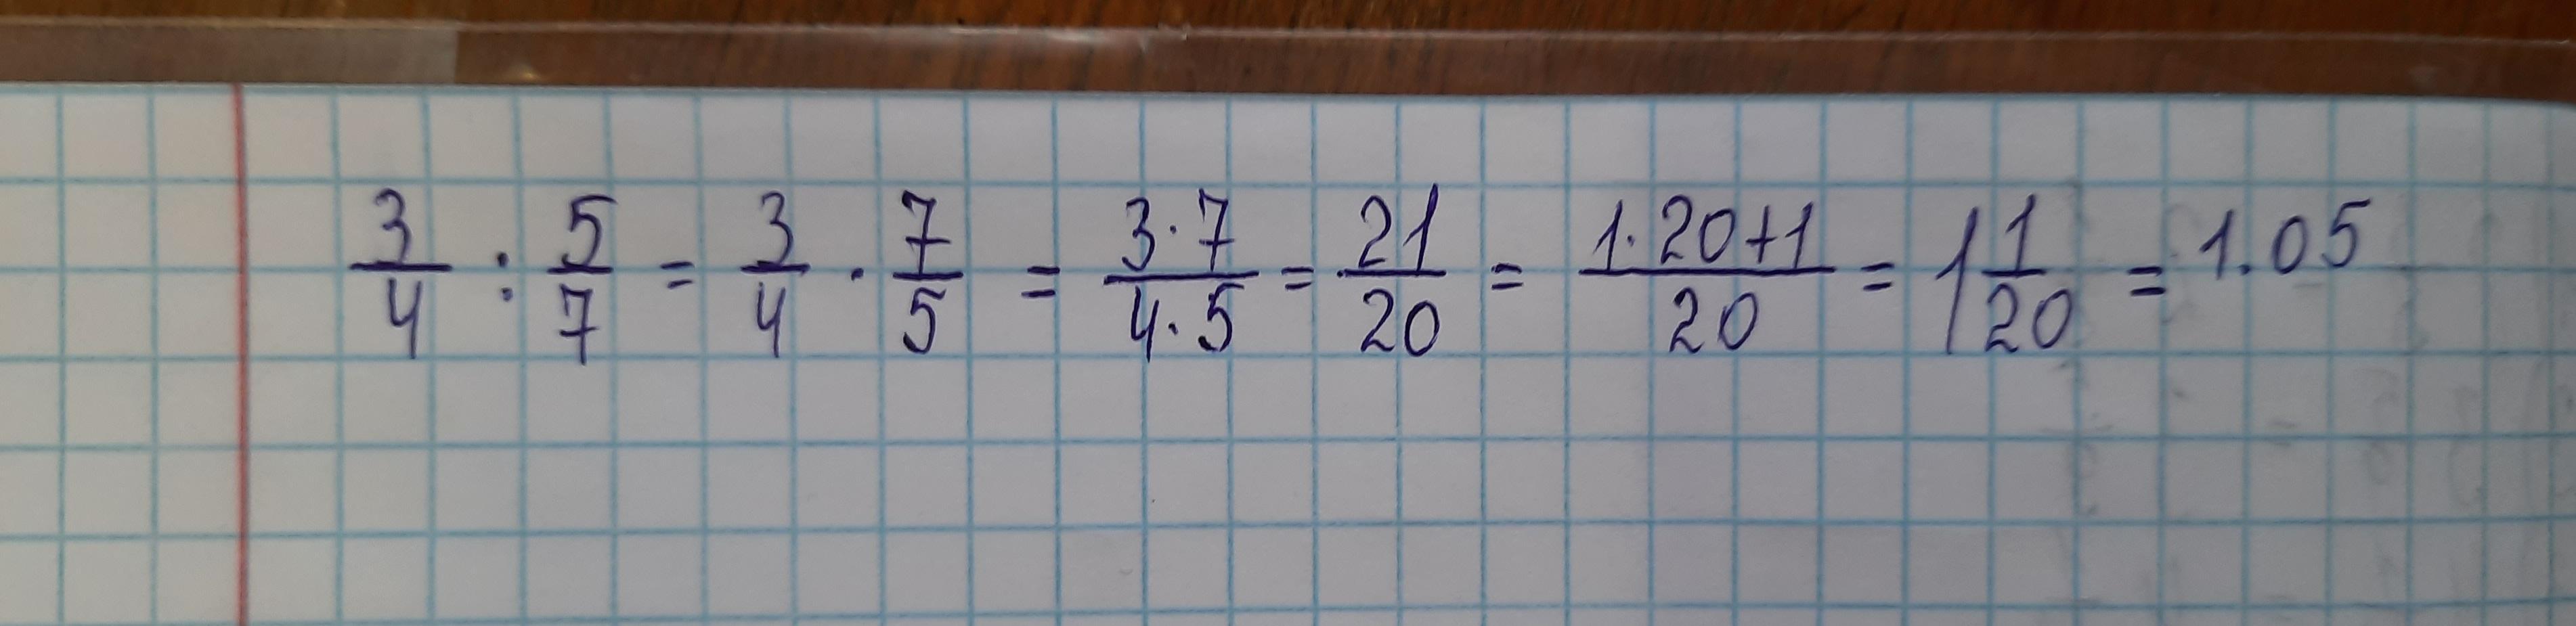 3/4 : 5/7 = 3/4 · 7/5 = 3·7/4·5 = 21/20 = 1·20+1/20 = 1 1/20 = 1.05